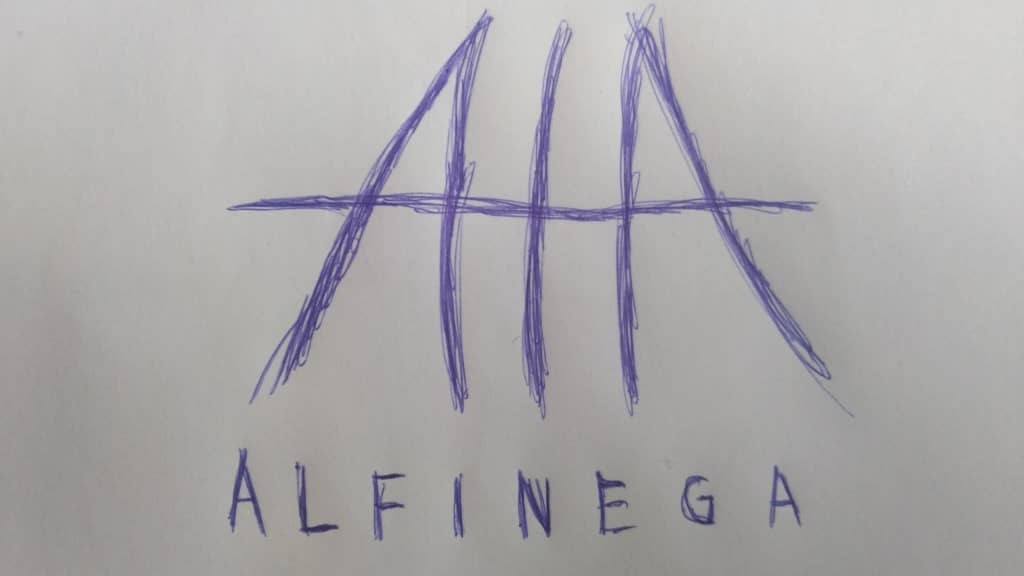 AIA
ALFINEGA